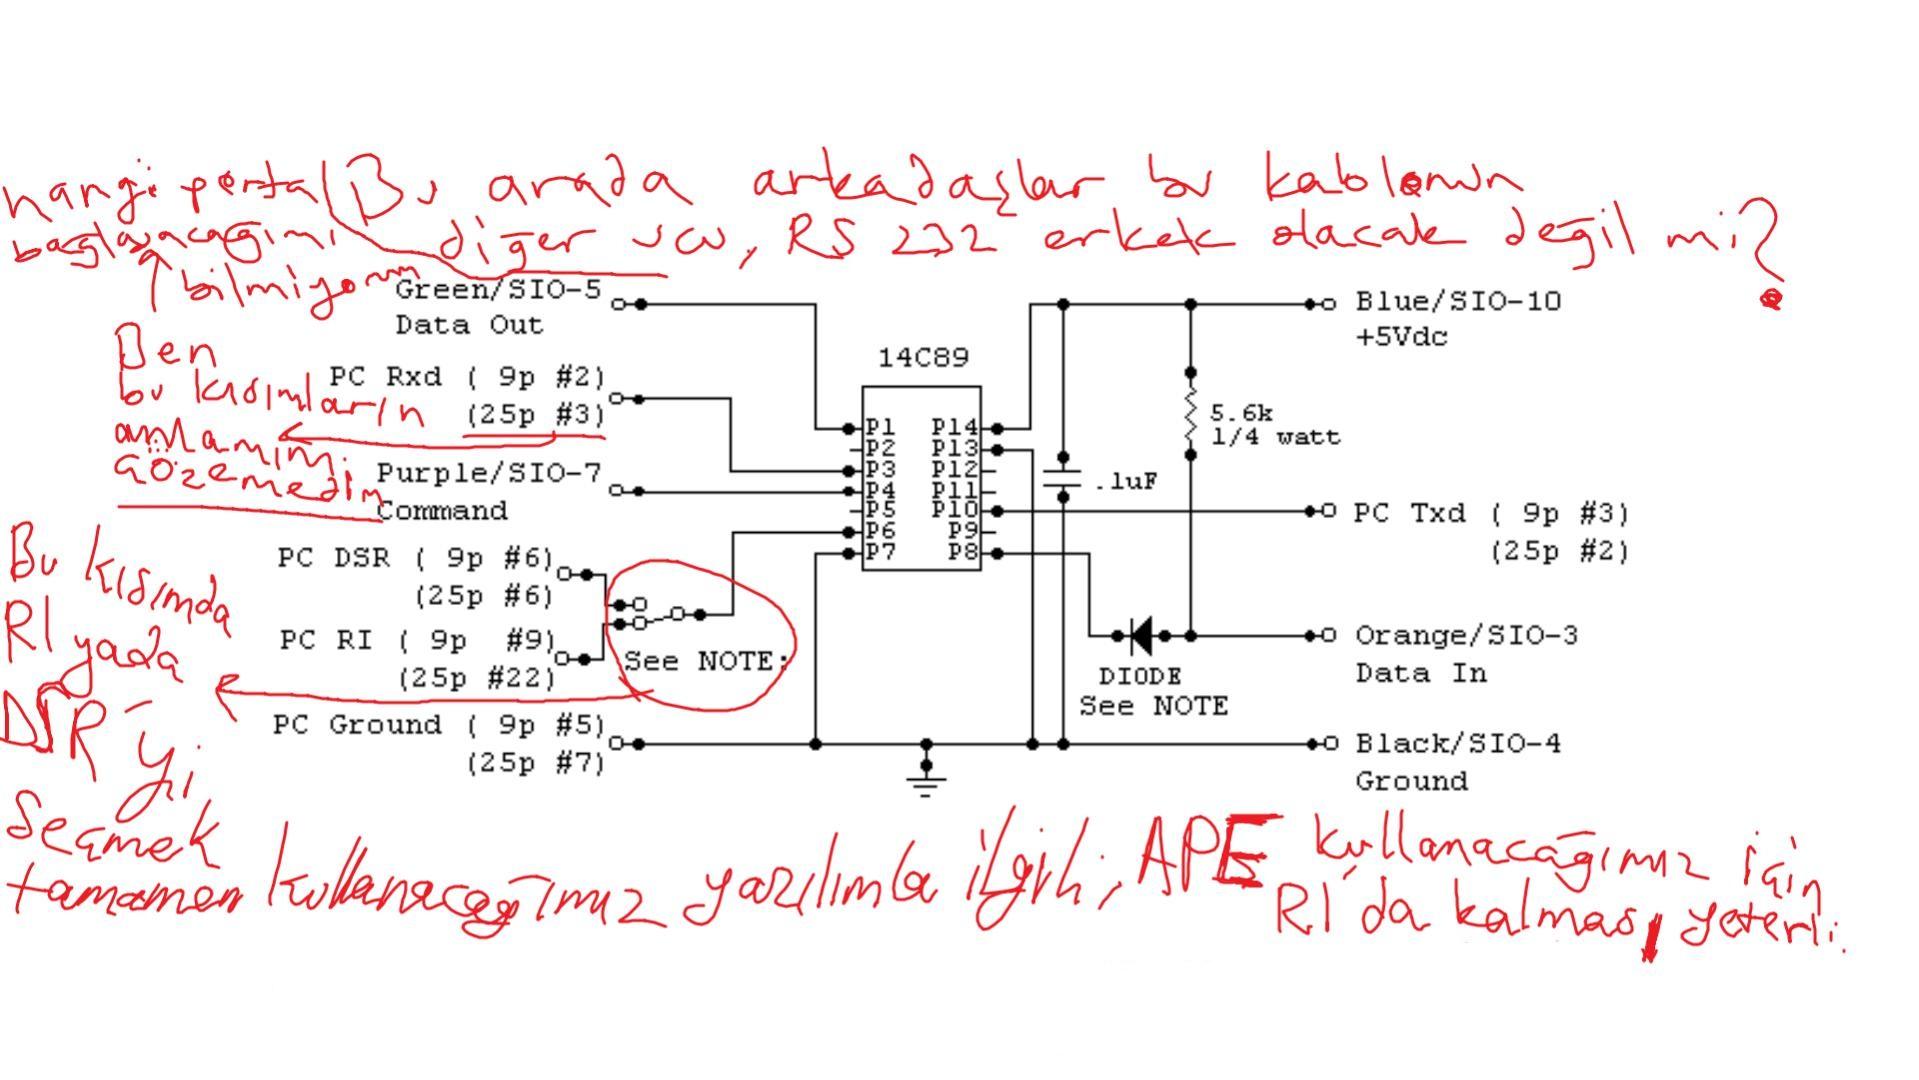 Bu arada arkadaşlar bu kablonun
diğer ucu, RS 232 erkek olacak değil mi?
hangi portal
bağlayacağımı
bilmiyorum
Green/SIO-5
Data Out
Ben
bu kısımların
anlamını
çözemedim
PC Rxd ( 9p #2)
(25p #3)
Purple/SIO-7
Command
Bu kısımda
RI yada
DSR-yi
seçmek
tamamen kullanacağımız yazılımla ilgili, APE kullanacağımız için
RI'da kalması yeterli.
PC DSR ( 9p #6)
(25p #6)
PC RI ( 9p #9)
(25p #22)
See NOTE:
PC Ground ( 9p #5)
(25p #7)
14C89
P1
P2
P3
P4
P5
P6
P7
P14
P13
P12
P11
P10
P9
P8
Blue/SIO-10
+5Vdc
5.6k
1/4 watt
.1uF
PC Txd ( 9p #3)
(25p #2)
Orange/SIO-3
Data In
DIODE
See NOTE
Black/SIO-4
Ground